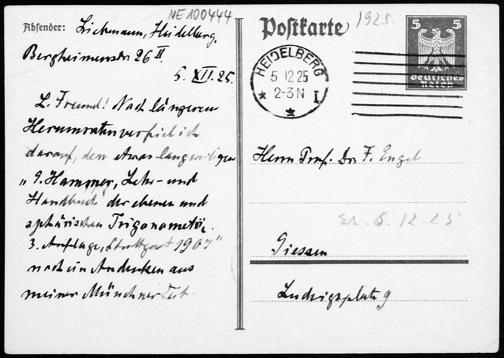 NE100444
1925.
Absender: Liebmann, Heidelberg.
Bergheimerstr 26 II
5. XII. 25.
L. Freund! Nach längerem
Herumraten verfiel ich
darauf, den etwas langweiligen
"9. Hammer, Lehr- und
Handbuch der ebenen und
sphärischen Trigonometrie,
3. Auflage, Stuttgart 1907"
noch ein Andenken aus
meiner Münchner Zeit
Postkarte
HEIDELBERG
5 12 25
2-3 N
* * I
5 5
Deutsches
Reich
Herrn Prof. Dr. F. Engel
5. 12 25
Giessen
Ludwigsplatz 9